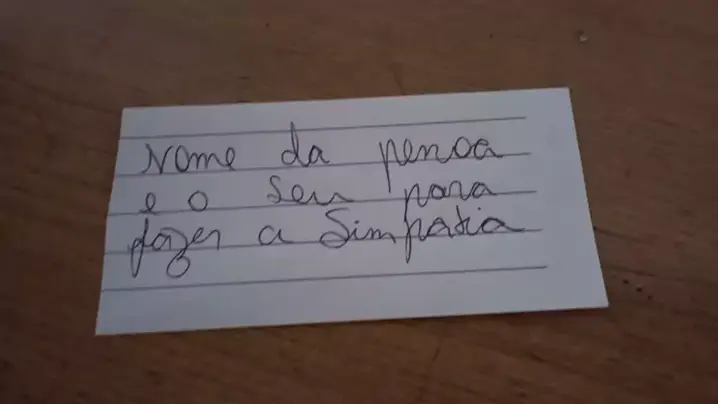 Nome da pessoa
e o seu para
fazer a Simpatia